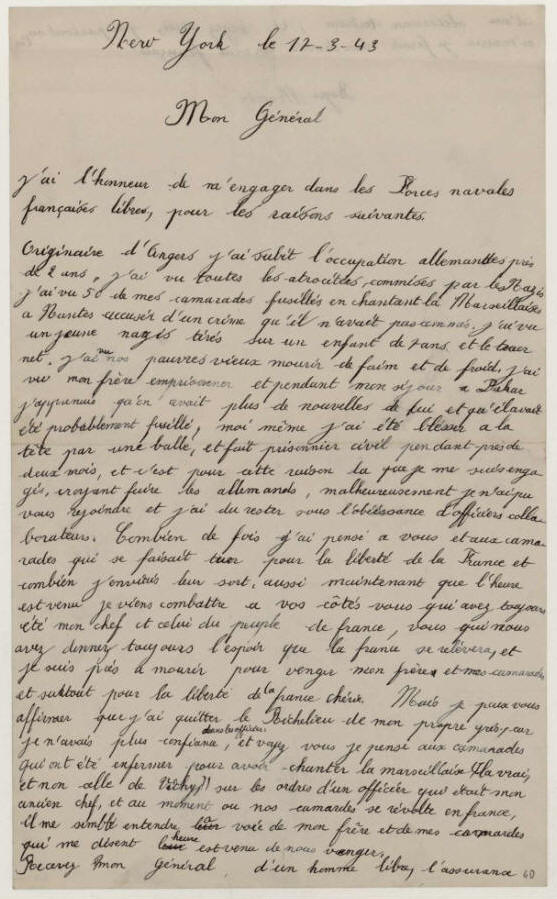 New York le 17-3-43
Mon Général
J'ai l'honneur de m'engager dans les Forces navales
françaises libres, pour les raisons suivantes.
Originaire d'Angers j'ai subit l'occupation allemandes près
de 2 ans, j'ai vu toutes les atrocitées, commises par les Nazis
j'ai vu 50 de mes camarades fusillés en chantant la Marseillaises
a Nantes accusér d'un crime qu'il n'avait pas commis. j'ai vu
un jeune nazis tirés sur un enfant de 7 ans, et le tuer
net. j'ai vu nos pauvres vieux mourir de faim et de froid, j'ai
vu mon frère emprisonner et pendant mon séjour a Dakar
j'apprenais qu'on avait plus de nouvelles de lui et qu'il avait
été probablement fusillé, moi même j'ai été blesser a la
tête par une balle, et fait prisonnier civil pendant près de
deux mois, et c'est pour cette raison la que je me suis enga
gés, croyant fuire les allemands, malheureusement je n'ai pu
vous rejoindre et j'ai du rester sous l'obéissance d'officiers colla-
borateurs. Combien de fois j'ai pensé a vous et aux cama-
rades qui se faisait tuer pour la liberté de la France et
combien j'enviais leur sort, aussi maintenant que l'heure
est venu je viens combattre a vos côtés vous qui avez toujours
été mon chef et celui du peuple de france, vous qui nous
avez donner toujours l'espoir que la france se relèvera, et
je suis près a mourir pour venger mon frère et mes camarades
et surtout pour la liberté de la france chérie. Mais je peux vous
affirmer que j'ai quitter le Richelieu de mon propre grès, car
je n'avais plus confiance dans les officiers, et voyez vous je pense aux camarades
qui ont été enfermer pour avoir chanter la marseillaise (la vrai,
et non celle de Vichy,) sur les ordres d'un officier qui était mon
ancien chef, et au moment ou nos camardes se révolte en france,
il me semble entendre la voie de mon frère et de mes camardes
qui me disent l'heure est venu de nous venger.
Recevez mon Général, d'un homme libre, l'assurance
40